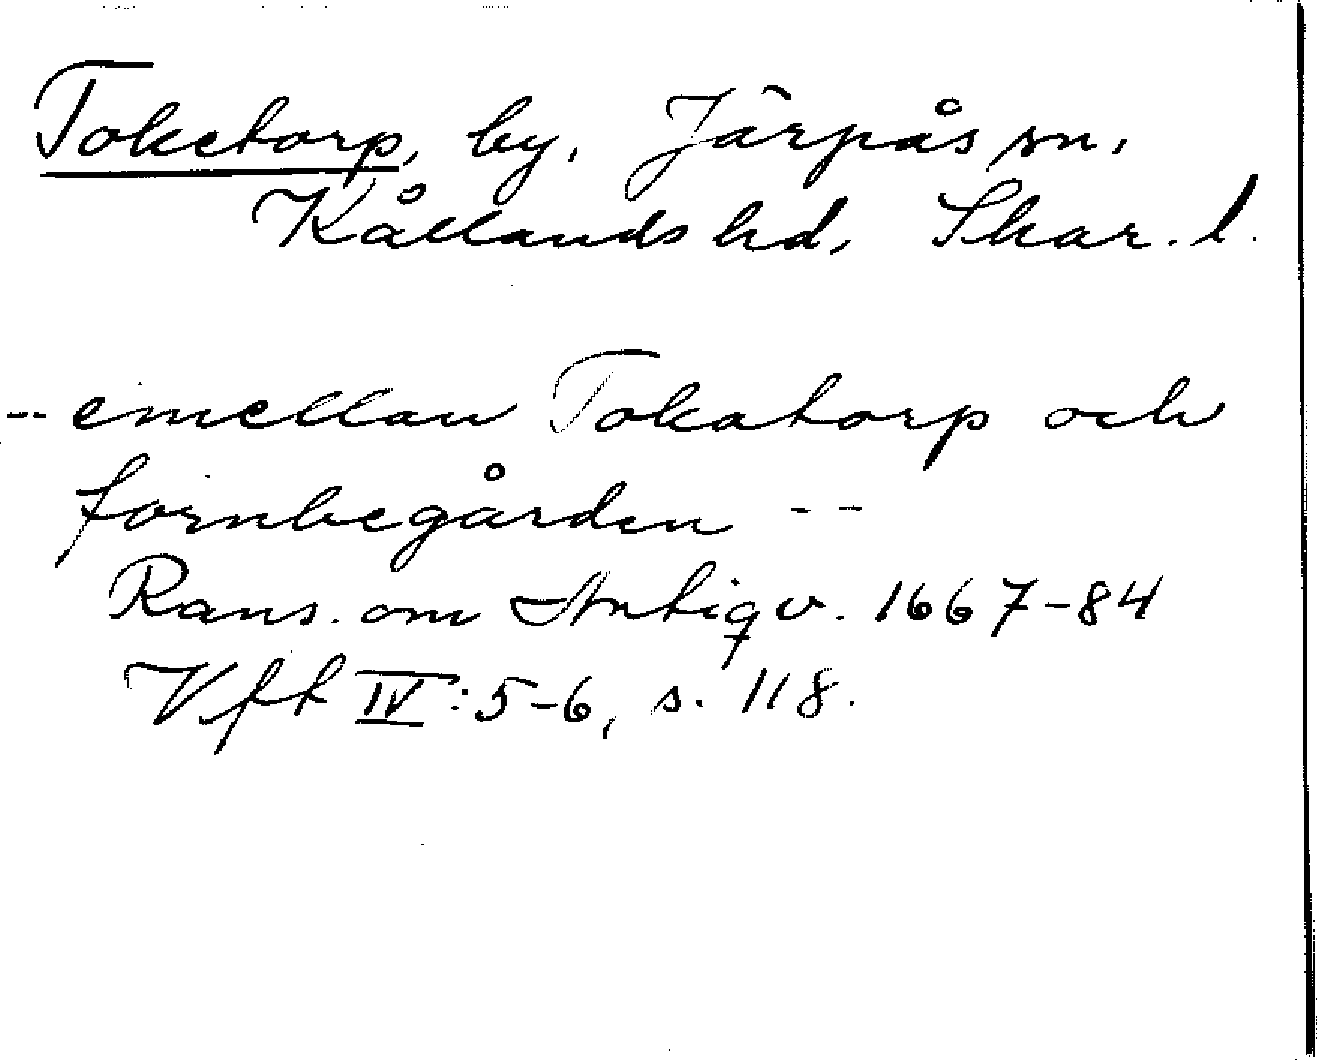 Toketorp, by, Järpås sn,
Kållands hd, Skar. l.
-- emellan Tokatorp och
fornbegården --
Rans. om Antiqv. 1667-84
Vft IV: 5-6, s. 118.